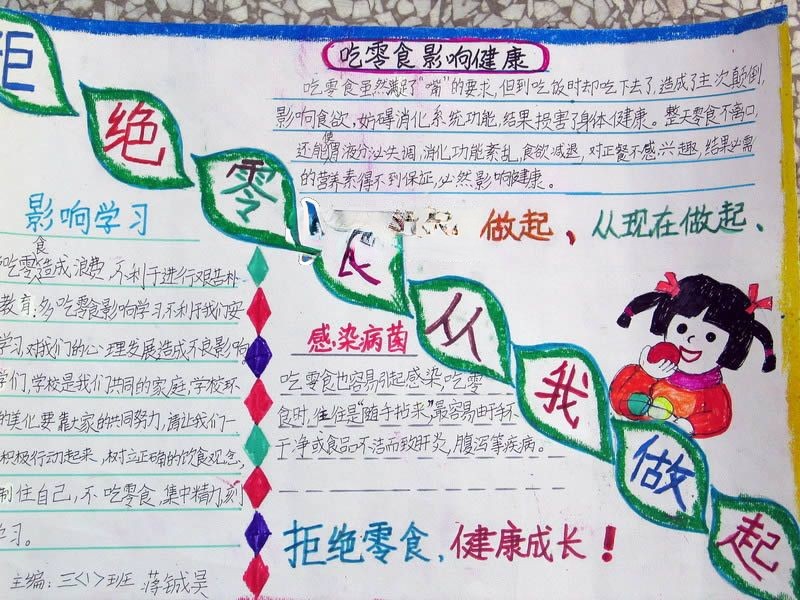 拒绝零食从我做起
吃零食影响健康
吃零食虽然满足了“嘴”的要求,但到吃饭时却吃下去了,造成了主次颠倒,
影响食欲,妨碍消化系统功能,结果损害了身体健康。整天零食不离口,
还能使胃液分必失调,消化功能紊乱,食欲减退,对正餐不感兴趣,结果必需
的营养素得不到保证,必然影响健康。
做起、从现在做起、
影响学习
吃零食造成浪费,不利于进行艰苦朴
教育:多吃零食影响学习,不利于我们安
学习,对我们的心理发展造成不良影响
学们,学校是我们共同的家庭,学校环
的美化要靠大家的共同努力,请让我们一
积极行动起来,树立正确的饮食观念,
制住自己,不吃零食,集中精力刻
学习。
主编:三<1>班 蒋铖昊
感染病菌
吃零食也容易引起感染,吃零
食时,往往是“随手拈来”,最容易由于不
干净或食品不洁而致肝炎,腹泻等疾病。
拒绝零食,健康成长!